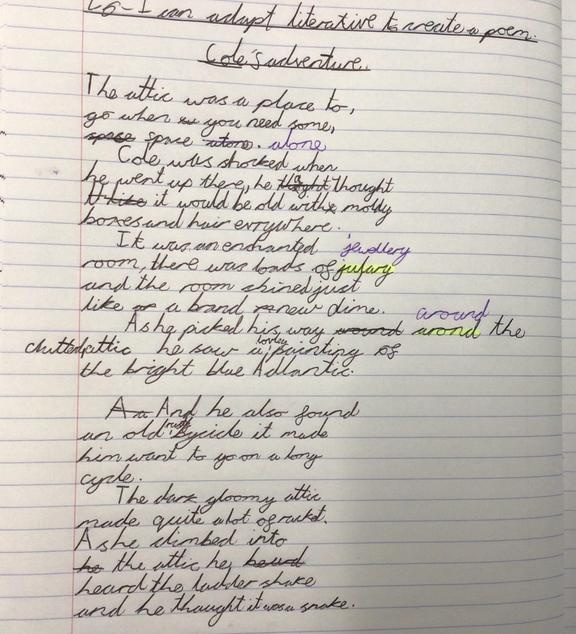 LO - I can adapt literative to create a poem.
Cole's adventure.
The attic was a place to,
go when you need some,
space alone
Cole was shocked when
he went up there, he thought
it would be old with moldy
boxes and hair evrywhere.
It was an enchanted jewellery
room, there was loads of julury
and the room shined just
like a brand new dime. around
As he picked his way arond the
chittedattic he saw a lovley painting of
the bright blue Adlantic.
And he also found
an old rusty bycicle it made
him want to go on a long
cycle.
The dark gloomy attic
made quite alot of rackt.
As he climbed into
the attic he,
heard the ladder shake
and he thought it was a snake.